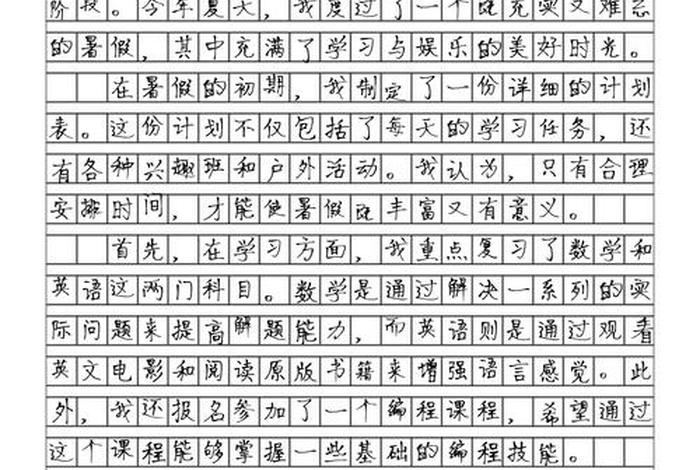 阶段。今年夏天，我度过了一个既充实又难忘
的暑假，其中充满了学习与娱乐的美好时光。
在暑假的初期，我制定了一份详细的计划
表。这份计划不仅包括了每天的学习任务，还
有各种兴趣班和户外活动。我认为，只有合理
安排时间，才能使暑假既丰富又有意义。
首先，在学习方面，我重点复习了数学和
英语这两门科目。数学是通过解决一系列的实
际问题来提高解题能力，而英语则是通过观看
英文电影和阅读原版书籍来增强语言感觉。此
外，我还报名参加了一个编程课程，希望通过
这个课程能够掌握一些基础的编程技能。